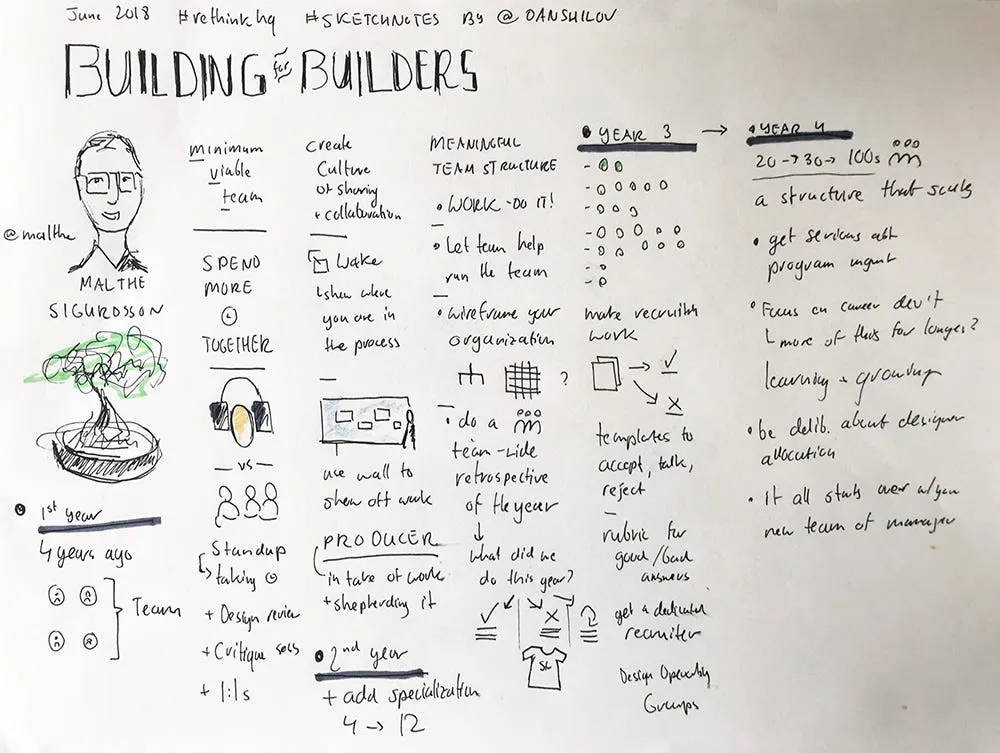 June 2018 #rethinkhq #SKETCHNOTES BY @DANSHILOV
BUILDING for BUILDERS
@malthe
MALTHE
SIGURDSSON
1st year
4 years ago
Team
minimum
viable
team
SPEND
MORE
TOGETHER
- VS -
Standup
taking
+ Design review
+ Critique sess
+ 1:1s
create
Culture
of sharing
+ collaboration
Wake
show where
you are in
the process
use wall to
show off work
PRODUCER
in take of work
+ shepherding it
2nd year
+ add specialization
4 → 12
MEANINGFUL
TEAM STRUCTURE
• WORK - DO IT!
• Let team help
run the team
• wireframe your
organization
?
• do a
team-wide
retrospective
of the year
what did we
do this year?
YEAR 3 →
make recruiting
work
templates to
accept, talk,
reject
rubric for
good/bad
answers
get a dedicated
recruiter
Design
Groups
YEAR 4
20 → 30 → 100s
a structure that scales
• get serious abt
program mgmt
• Focus on career dev't
more of this for longer?
learning + growing
• be delib. about designer
allocation
• it all starts over w/you
new team of manager